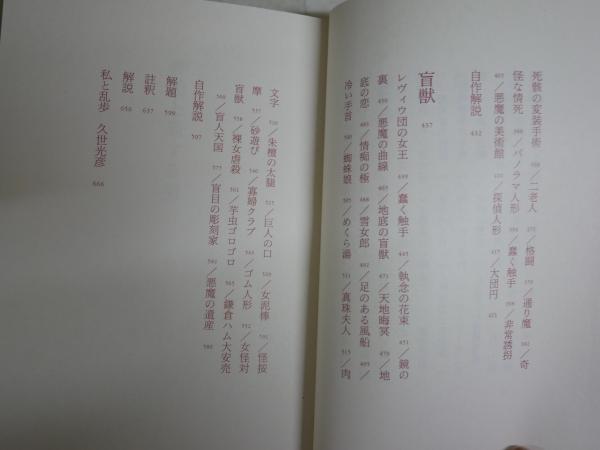 死骸の変装手術／二老人／格闘／通り魔／奇
怪な情死／パノラマ人形／蠢く触手／非常誘拐
405／悪魔の美術館／探偵人形 417／大団円
自作解説 432
盲獣 437
レヴィウ団の女王 439／蠢く触手／執念の花束 451／鏡の
裏／悪魔の曲線 465／地底の盲獣 473／天地晦冥 479／地
底の恋 485／情痴の極／雪女郎／足のある風船／
冷い手首／蜘蛛娘 505／めくら湯 511／真珠夫人 515／肉
文字／朱檀の太腿／巨人の口／女泥棒／怪按
摩 537／砂遊び 540／寡婦クラブ／ゴム人形 552／女怪対
盲獣 558／裸女虐殺 561／芋虫ゴロゴロ 565／鎌倉ハム大安売
568／盲人天国 575／盲目の彫刻家／悪魔の遺産
自作解説 597
解題 599
註釈 637
解説 656
私と乱歩 久世光彦 666